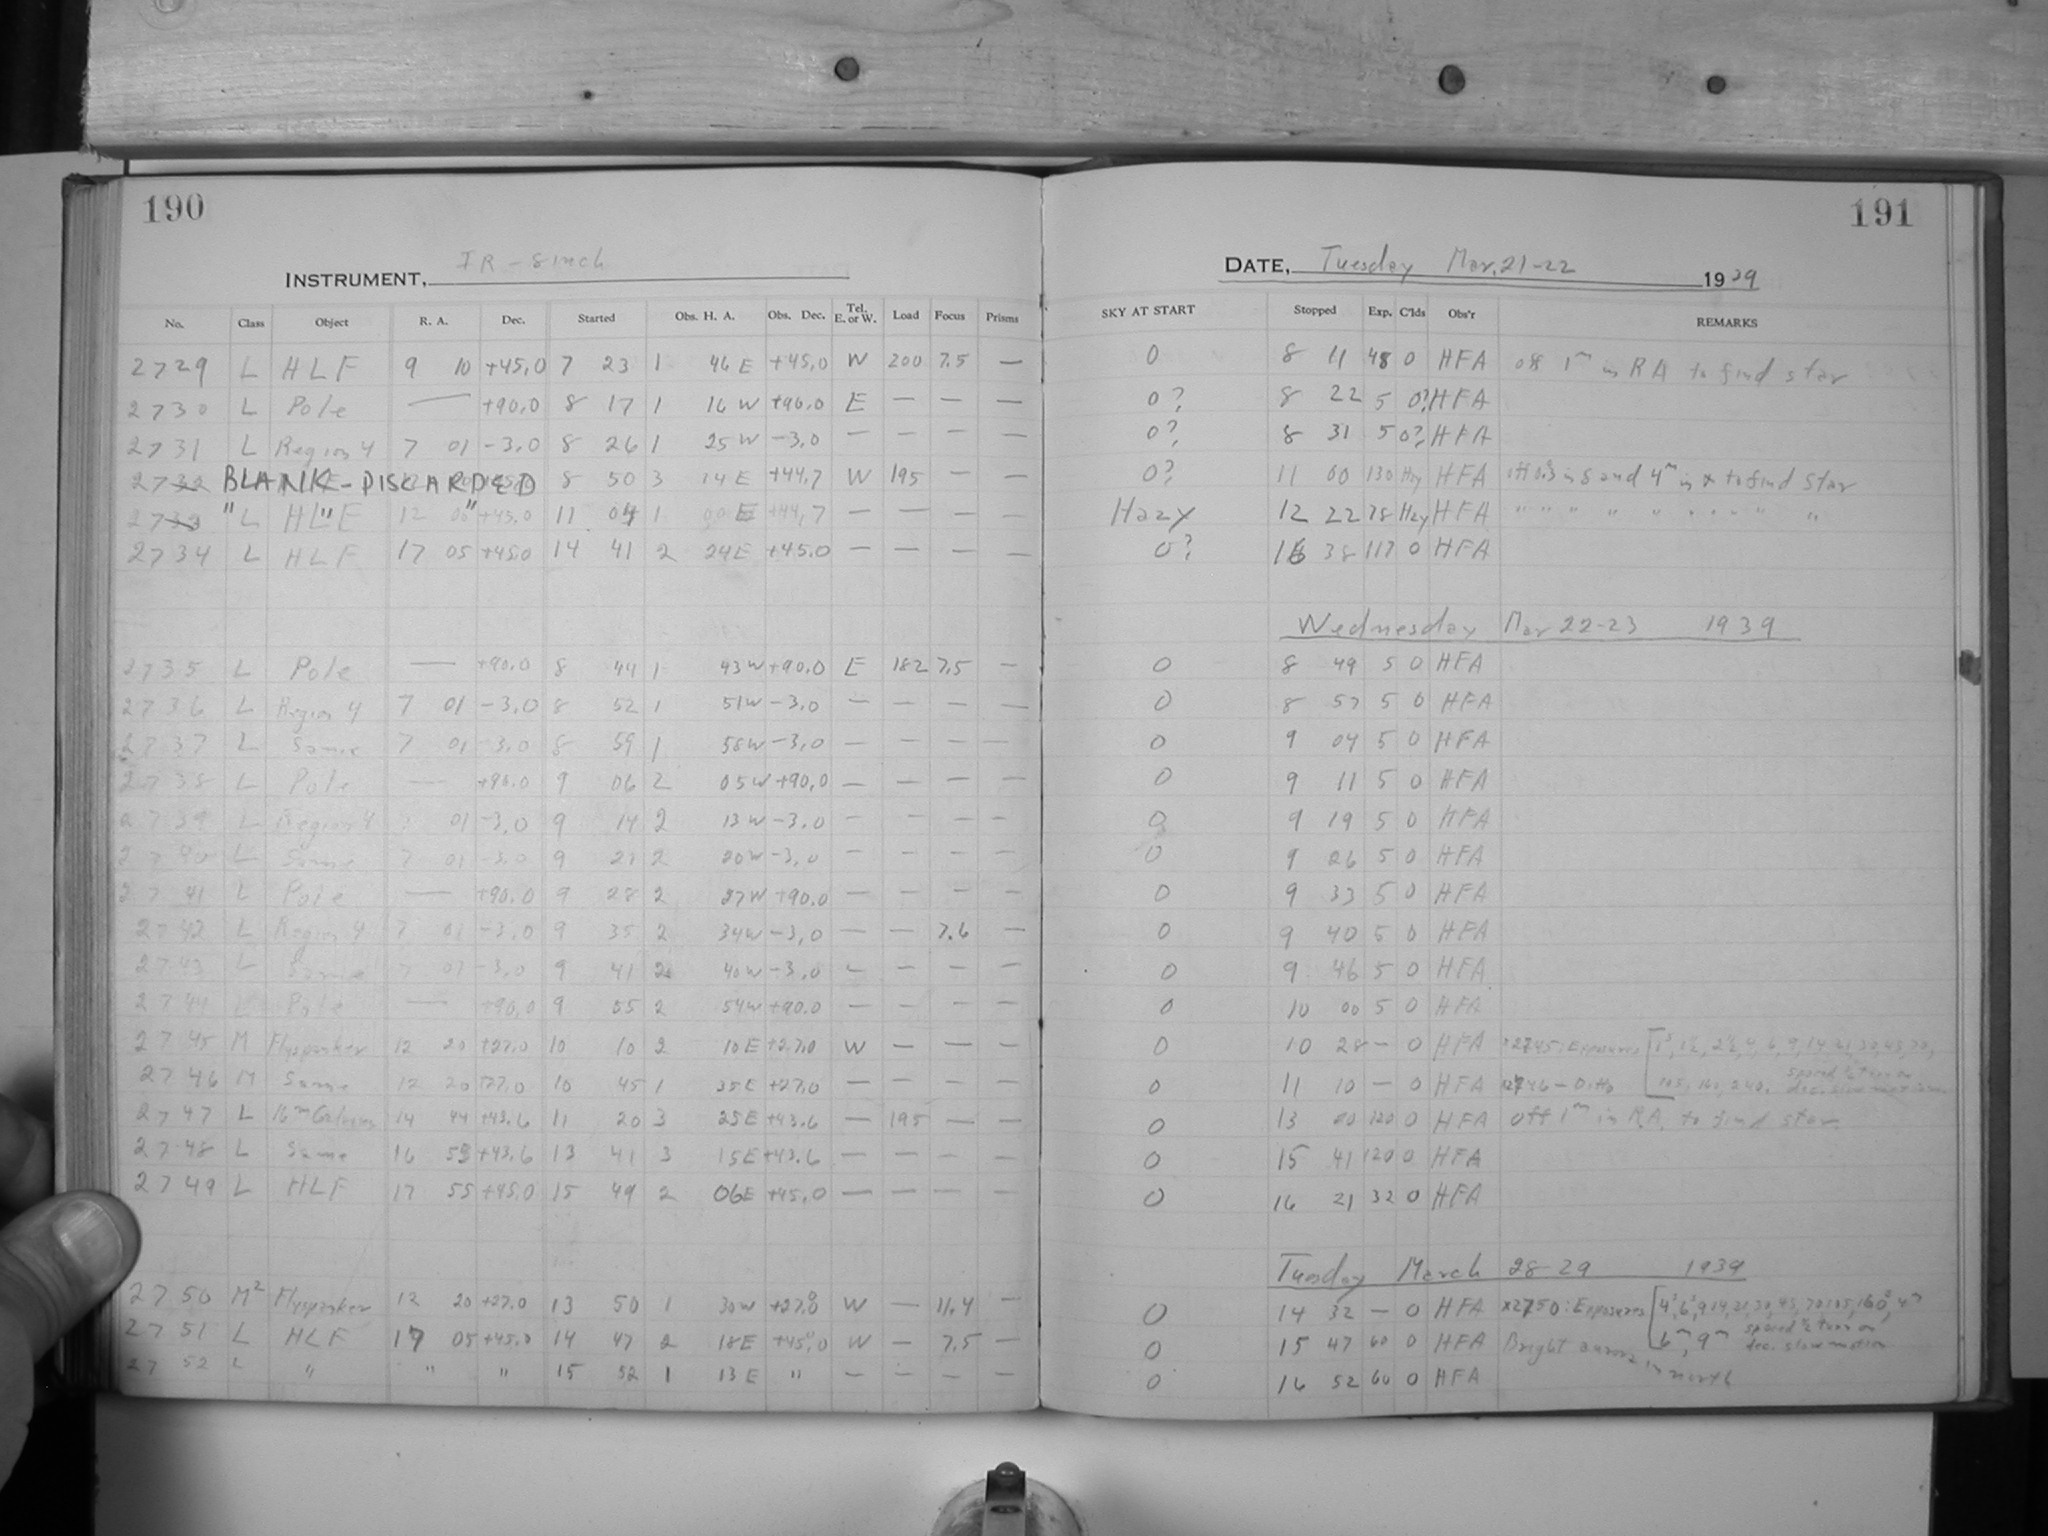 190
191
INSTRUMENT, IR - 8 inch
DATE, Tuesday Mar. 21-22 1939
No. Class Object R. A. Dec. Started Obs. H. A. Obs. Dec. Tel. E. or W. Load Focus Prisms SKY AT START Stopped Exp. C'lds Obs'r REMARKS
2729 L HLF 9 10 +45.0 7 23 1 46 E +45.0 W 200 7.5 — 0 8 11 48 0 HFA off 1m in RA to find star
2730 L Pole — +90.0 8 17 1 16 W +90.0 E — — — 0? 8 22 5 0? HFA
2731 L Region 4 7 01 -3.0 8 26 1 25 W -3.0 — — — — 0? 8 31 5 0? HFA
2732 BLANK - DISCARDED 8 50 3 14 E +44.7 W 195 — — 0? 11 00 130 Hzy HFA in δ and 4m in α to find star
2733 " L HLF " 12 00 " +45.0 11 04 1 00 E +44.7 — — — — Hazy 12 22 78 Hzy HFA " " " " " " " " "
2734 L HLF 17 05 +45.0 14 41 2 24 E +45.0 — — — — 0? 16 38 117 0 HFA
Wednesday Mar 22-23 1939
2735 L Pole — +90.0 8 44 1 43 W +90.0 E 182 7.5 — 0 8 49 5 0 HFA
2736 L Region 4 7 01 -3.0 8 52 1 51 W -3.0 — — — — 0 8 57 5 0 HFA
2737 L Same 7 01 -3.0 8 59 1 58 W -3.0 — — — — 0 9 04 5 0 HFA
2738 L Pole — +90.0 9 06 2 05 W +90.0 — — — — 0 9 11 5 0 HFA
2739 L Region 4 7 01 -3.0 9 14 2 13 W -3.0 — — — — 0 9 19 5 0 HFA
2740 L Same 7 01 -3.0 9 21 2 20 W -3.0 — — — — 0 9 26 5 0 HFA
2741 L Pole — +90.0 9 28 2 27 W +90.0 — — — — 0 9 33 5 0 HFA
2742 L Region 4 7 01 -3.0 9 35 2 34 W -3.0 — — 7.6 — 0 9 40 5 0 HFA
2743 L Same 7 01 -3.0 9 41 2 40 W -3.0 — — — — 0 9 46 5 0 HFA
2744 L Pole — +90.0 9 55 2 54 W +90.0 — — — — 0 10 00 5 0 HFA
2745 M Flyspanker 12 20 +27.0 10 10 2 10 E +27.0 W — — — 0 10 28 — 0 HFA x2745: Exposures 4, 6, 9, 14, 21, 30, 45, 70,
2746 M Same 12 20 +27.0 10 45 1 35 E +27.0 — — — — 0 11 10 — 0 HFA x2746 - Ditto 105, 160, 240. spaced ½ turn on dec. slow motion
2747 L 16m Galaxies 14 44 +43.6 11 20 3 25 E +43.6 — 195 — 0 13 20 120 0 HFA Off 1m in RA. to find star.
2748 L Same 16 55 +43.6 13 41 3 15 E +43.6 — — — — 0 15 41 120 0 HFA
2749 L HLF 17 55 +45.0 15 49 2 06 E +45.0 — — — — 0 16 21 32 0 HFA
Tuesday March 28-29 1939
2750 M² Flyspanker 12 20 +27.0 13 50 1 30 W +27.0 W — 11.4 — 0 14 32 — 0 HFA x2750: Exposures 4s, 6s, 9, 14, 21, 30, 45, 70, 105, 160s, 4m
2751 L HLF 17 05 +45.0 14 47 2 18 E +45.0 W — 7.5 — 0 15 47 60 0 HFA 6m, 9m spaced ½ turn on dec. slow motion
Bright aurora in north
2752 L " " " 15 52 1 13 E " — — — — 0 16 52 60 0 HFA